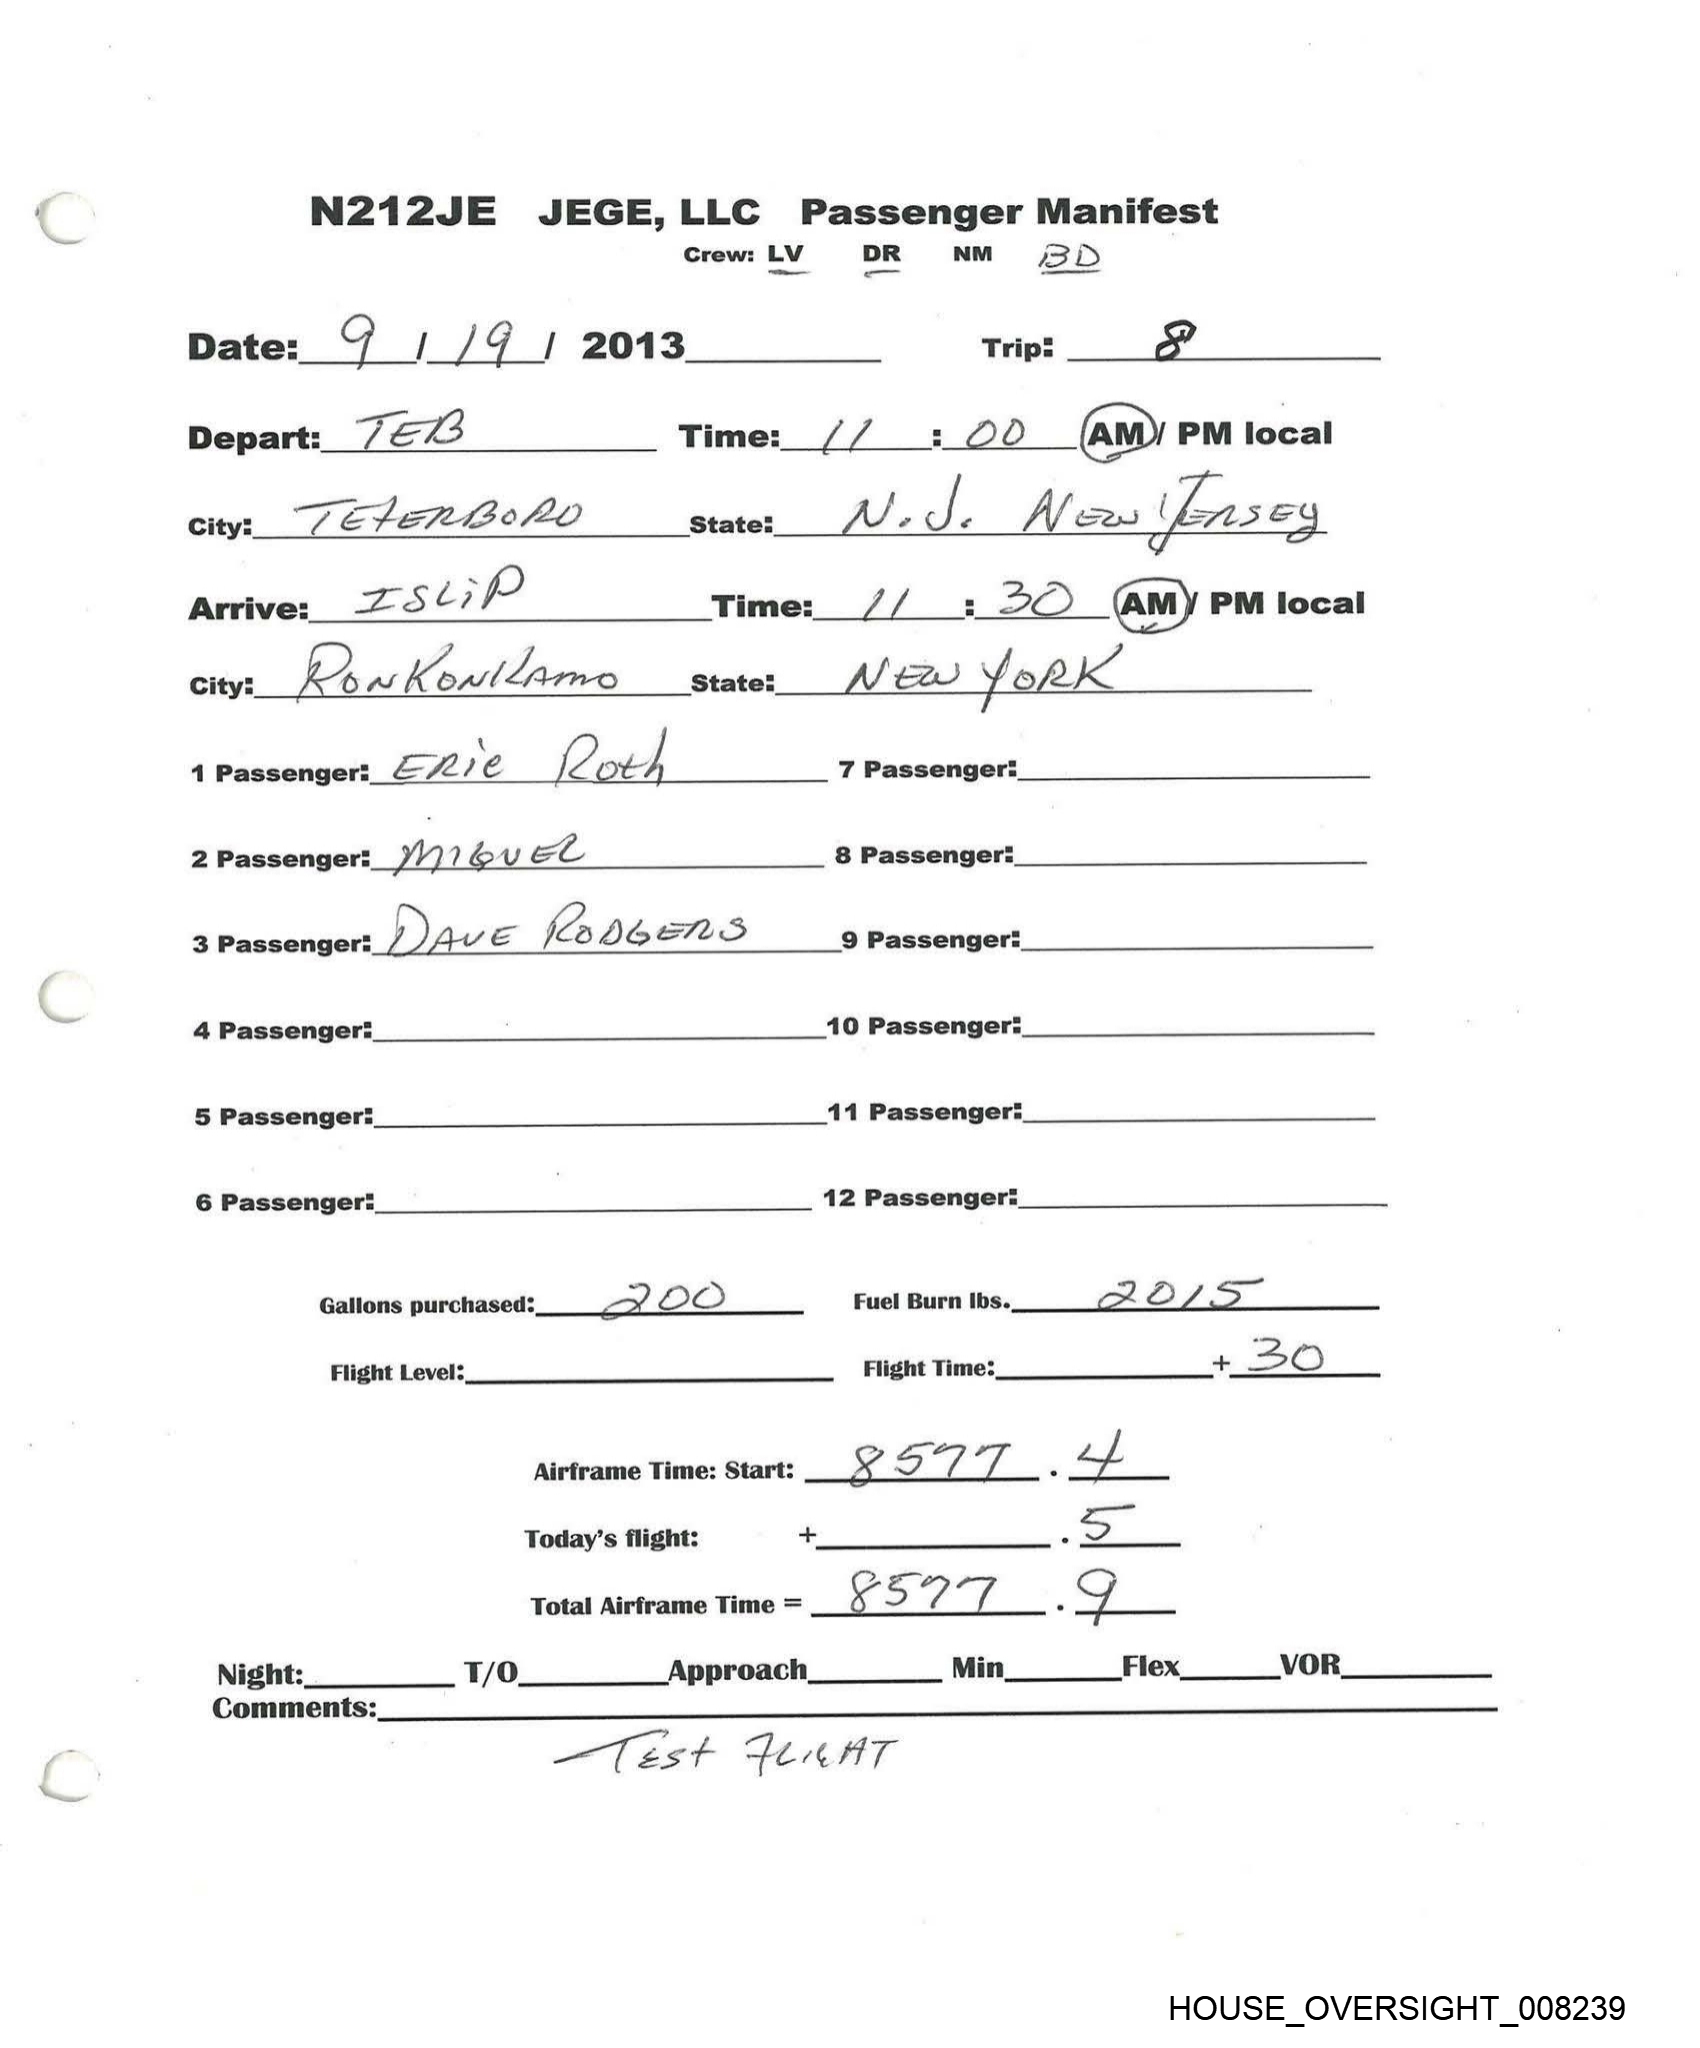 N212JE JEGE, LLC Passenger Manifest
Crew: LV DR NM BD
Date: 9 / 19 / 2013 Trip: 8
Depart: TEB Time: 11 : 00 AM / PM local
City: TETERBORO State: N.J. NEW JERSEY
Arrive: ISLiP Time: 11 : 30 AM / PM local
City: RONKONKAMO State: NEW YORK
1 Passenger: ERic Roth 7 Passenger:
2 Passenger: MIGUEL 8 Passenger:
3 Passenger: DAVE RODGERS 9 Passenger:
4 Passenger: 10 Passenger:
5 Passenger: 11 Passenger:
6 Passenger: 12 Passenger:
Gallons purchased: 200 Fuel Burn lbs. 2015
Flight Level: Flight Time: + 30
Airframe Time: Start: 8577 . 4
Today's flight: + . 5
Total Airframe Time = 8577 . 9
Night: T/O Approach Min Flex VOR
Comments:
TEST FLIGHT
HOUSE_OVERSIGHT_008239